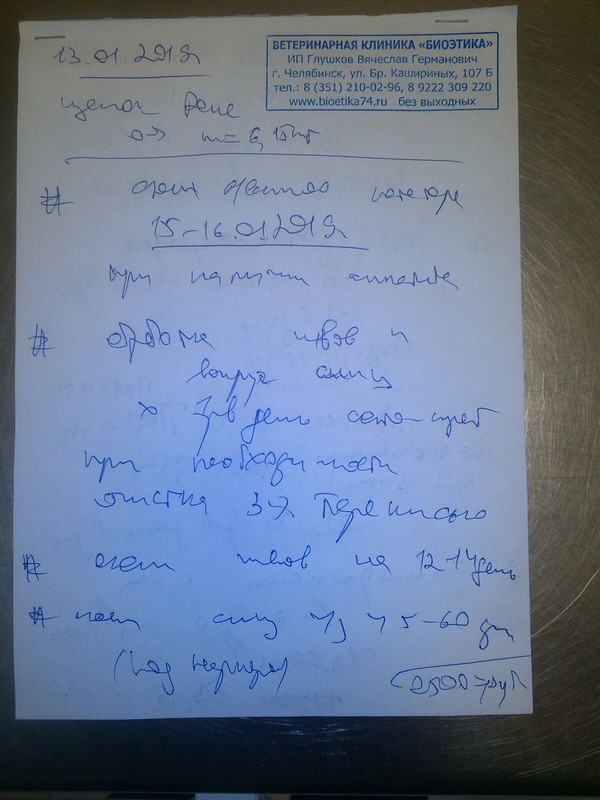 ВЕТЕРИНАРНАЯ КЛИНИКА «БИОЭТИКА»
ИП Глушков Вячеслав Германович
г. Челябинск, ул. Бр. Кашириных, 107 Б
тел.: 8 (351) 210-02-96, 8 9222 309 220
www.bioetika74.ru без выходных
13.01.2019г
щенок Рене
m=6,15кг
#
15-16.01.2019г
при наличии аппетита
# обработка швов и
вокруг спиц
x 3р в день
при необходимости
очистка 3% перекисью
# швов на 12-14 день
# спиц ч/з 45-60 дн
(под наркозом)
2500 руб